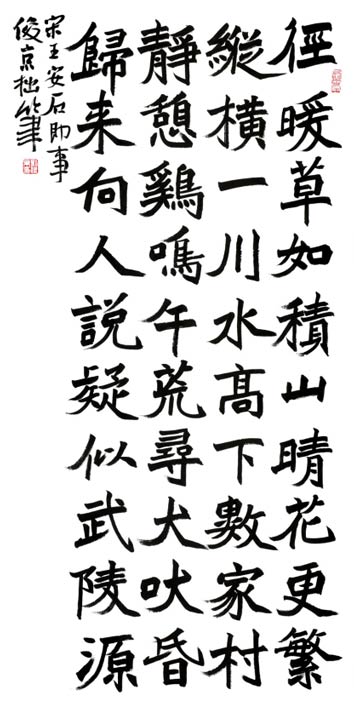 徑暖草如積山晴花更繁
縱橫一川水高下數家村
靜憩鷄鳴午荒尋犬吠昏
歸来向人說疑似武陵源
宋王安石即事
俊京拙筆